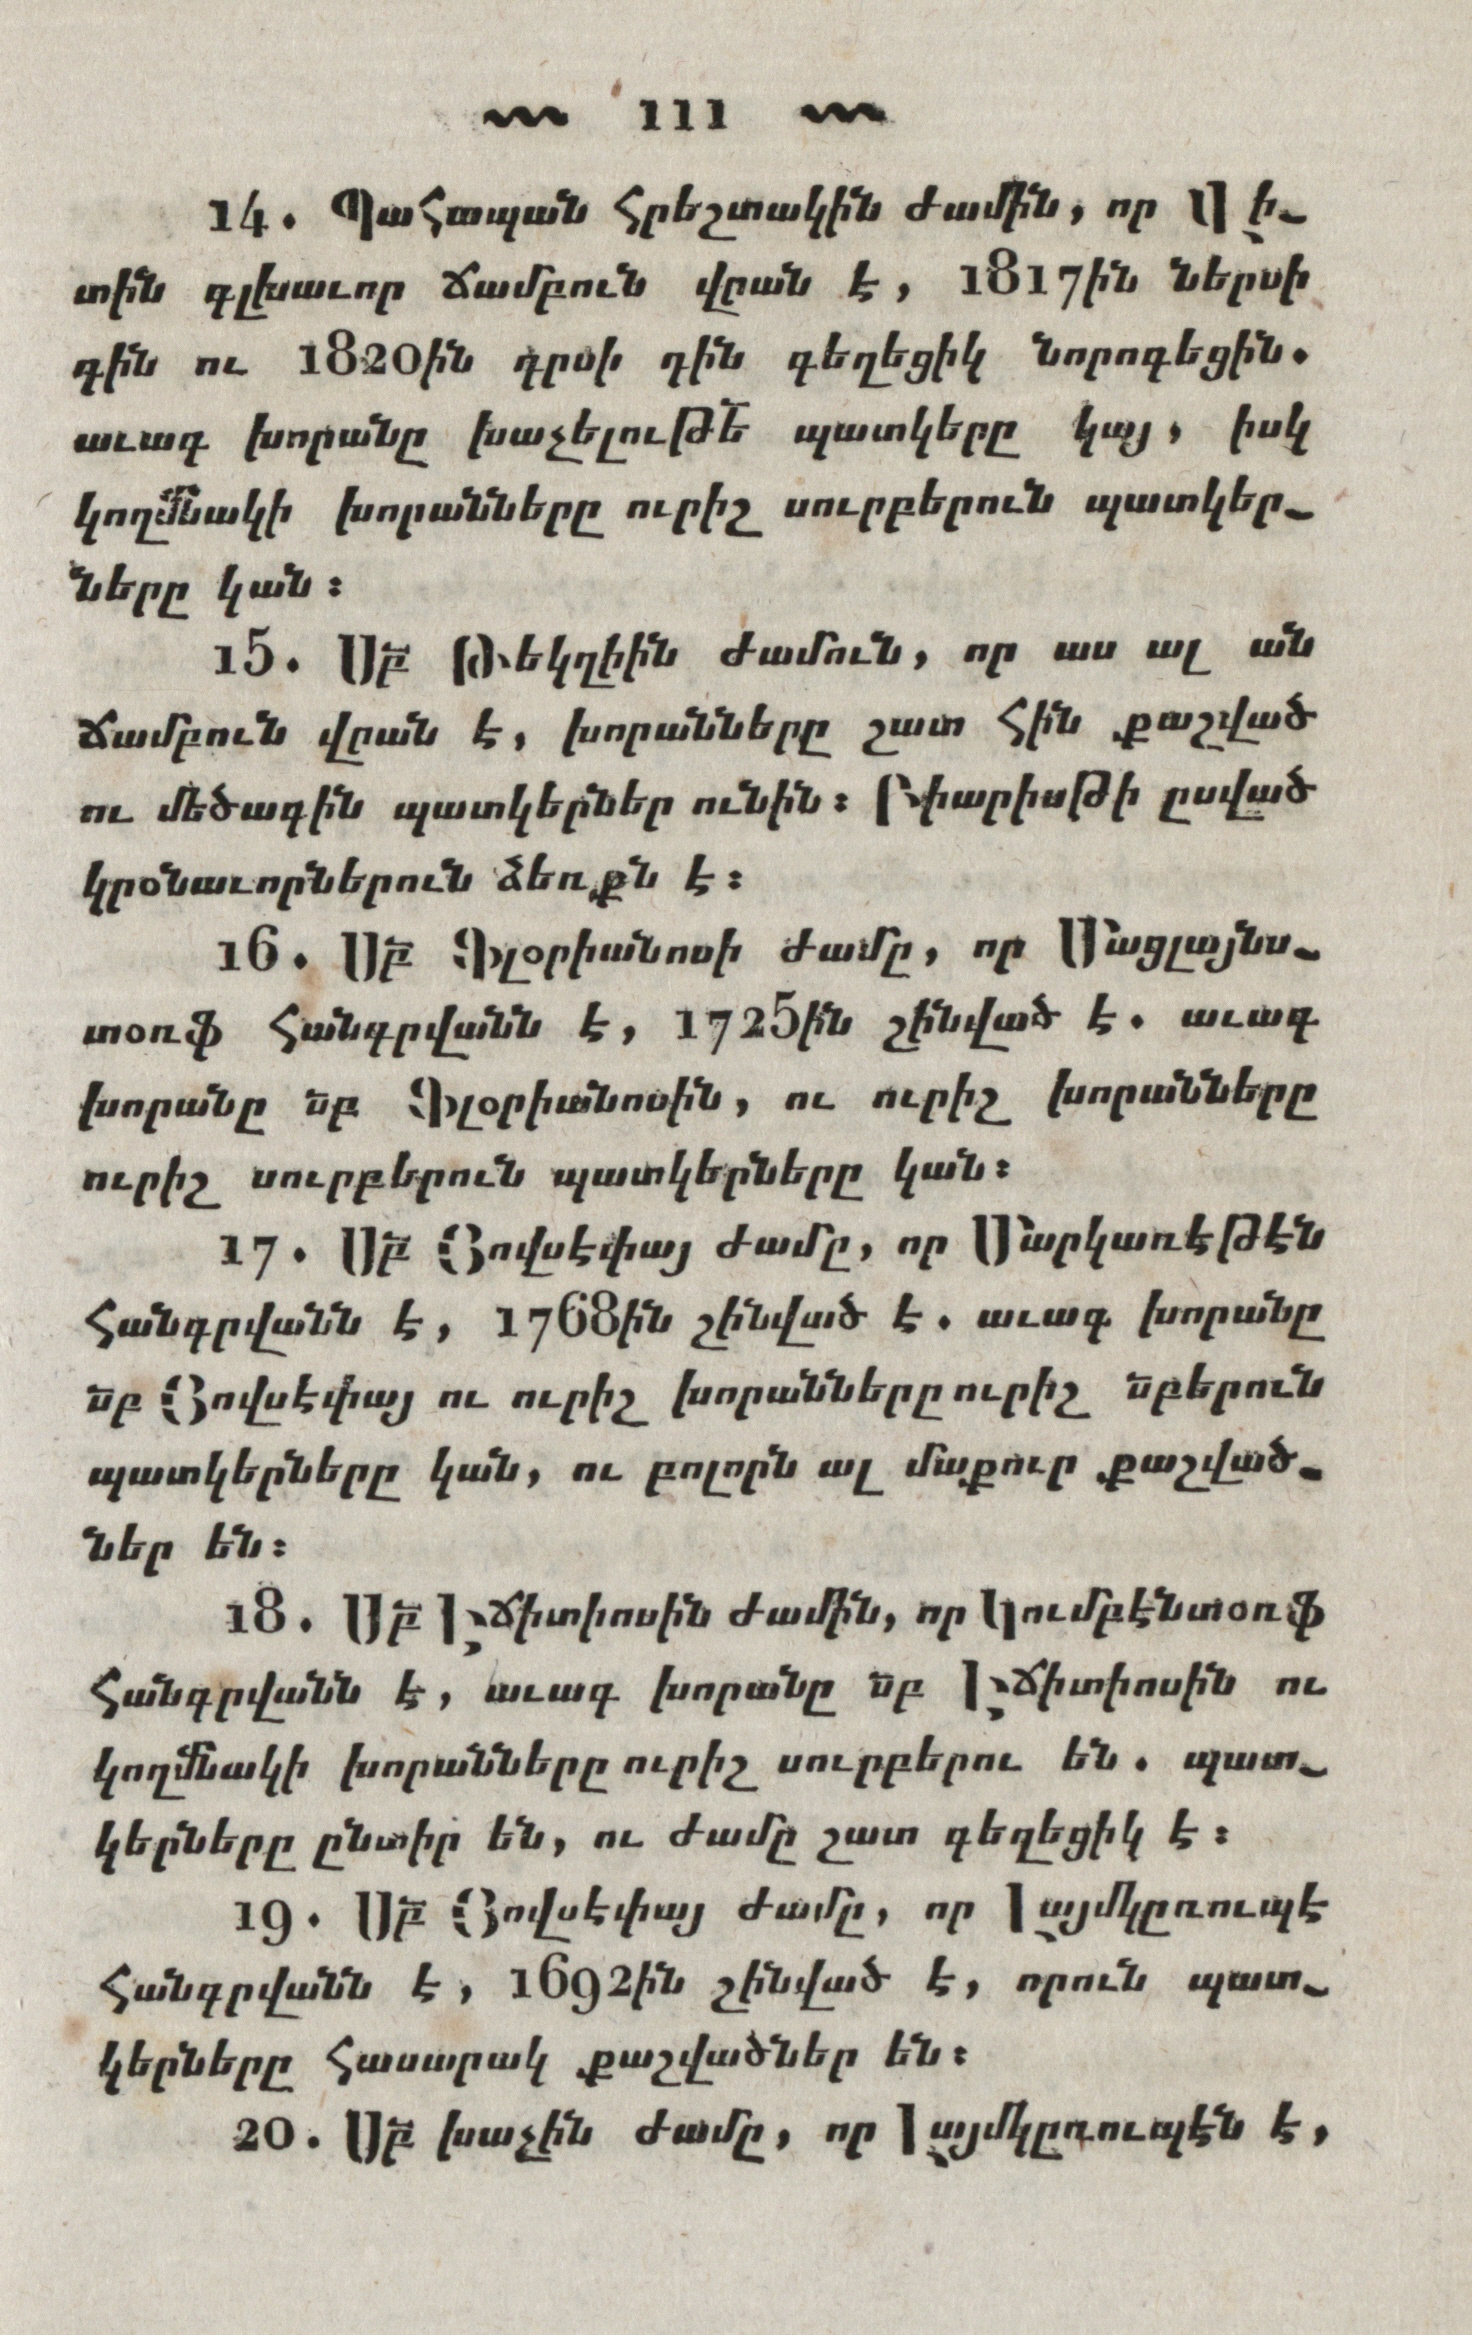 111
14. Պահապան հրեշտակին ժամին, որ Վի-
տին գլխաւոր ճամբուն վրան է, 1817ին ներսի
դին ու 1820ին դրսի դին գեղեցիկ նորոգեցին.
աւագ խորանը խաչելութե՟ պատկերը կայ, իսկ
կողմնակի խորանները ուրիշ սուրբերուն պատկեր-
ները կան։
15. Սբ՟ Թեկղիին ժամուն, որ աս ալ ան
ճամբուն վրան է, խորանները շատ հին քաշված
ու մեծագին պատկերներ ունին։ Բիարիսթի ըսված
կրօնաւորներուն ձեռքն է։
16. Սբ՟ Ֆլօրիանոսի ժամը, որ Մացլայնս-
տօռֆ հանգրվանն է, 1725ին շինված է. աւագ
խորանը սբ՟ Ֆլօրիանոսին, ու ուրիշ խորանները
ուրիշ սուրբերուն պատկերները կան։
17. Սբ՟ Յովսէփայ ժամը, որ Մարկառէթէն
հանգրվանն է, 1768ին շինված է. աւագ խորանը
սբ՟ Յովսէփայ ու ուրիշ խորանները ուրիշ սբ՟երուն
պատկերները կան, ու բոլորն ալ մաքուր քաշված-
ներ են։
18. Սբ՟ Էճիտիոսին ժամին, որ Կումբէնտօռֆ
հանգրվանն է, աւագ խորանը սբ՟ Էճիտիոսին ու
կողմնակի խորանները ուրիշ սուրբերու են. պատ-
կերները ընտիր են, ու ժամը շատ գեղեցիկ է։
19. Սբ՟ Յովսէփայ ժամը, որ Լայմկըռուպէ
հանգրվանն է, 1692ին շինված է, որուն պատ-
կերները հասարակ քաշվածներ են։
20. Սբ՟ խաչին ժամը, որ Լայմկըռուպէն է,